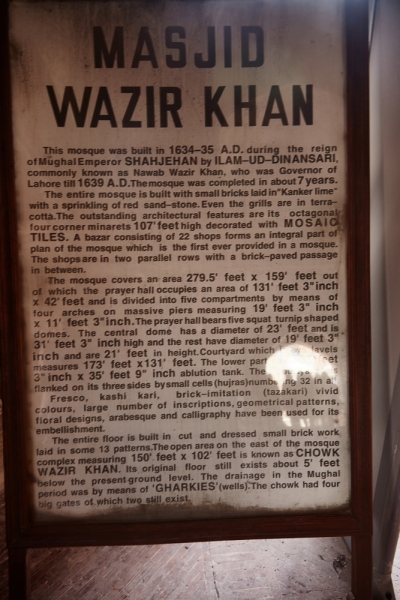 MASJID
WAZIR KHAN
This mosque was built in 1634–35 A.D. during the reign
of Mughal Emperor SHAHJEHAN by ILAM–UD–DINANSARI,
commonly known as Nawab Wazir Khan, who was Governor of
Lahore till 1639 A.D.The mosque was completed in about 7 years.
The entire mosque is built with small bricks laid in "Kanker lime"
with a sprinkling of red sand–stone. Even the grills are in terra–
cotta.The outstanding architectural features are its octagonal
four corner minarets 107' feet high decorated with MOSAIC
TILES. A bazar consisting of 22 shops forms an integral part of
plan of the mosque which is the first ever provided in a mosque.
The shops are in two parallel rows with a brick–paved passage
in between.
The mosque covers an area 279.5' feet x 159' feet out
of which the prayer hall occupies an area of 131' feet 3" inch
x 42' feet and is divided into five compartments by means of
four arches on massive piers measuring 19' feet 3" inch
x 11' feet 3" inch.The prayer hall bears five squat turnip shaped
domes. The central dome has a diameter of 23' feet and is
31' feet 3" inch high and the rest have diameter of 19' feet 3"
inch and are 21' feet in height. Courtyard which levels
measures 173' feet x 131' feet. The lower part
3" inch x 35' feet 9" inch ablution tank. The
flanked on its three sides by small cells (hujras) 32 in all
Fresco, kashi kari, brick–imitation (tazakari) vivid
colours, large number of inscriptions, geometrical patterns,
floral designs, arabesque and calligraphy have been used for its
embellishment.
The entire floor is built in cut and dressed small brick work
laid in some 13 patterns.The open area on the east of the mosque
complex measuring 150' feet x 102' feet is known as CHOWK
WAZIR KHAN. Its original floor still exists about 5' feet
below the present ground level. The drainage in the Mughal
period was by means of 'GHARKIES' (wells).The chowk had four
big gates of which two still exist.